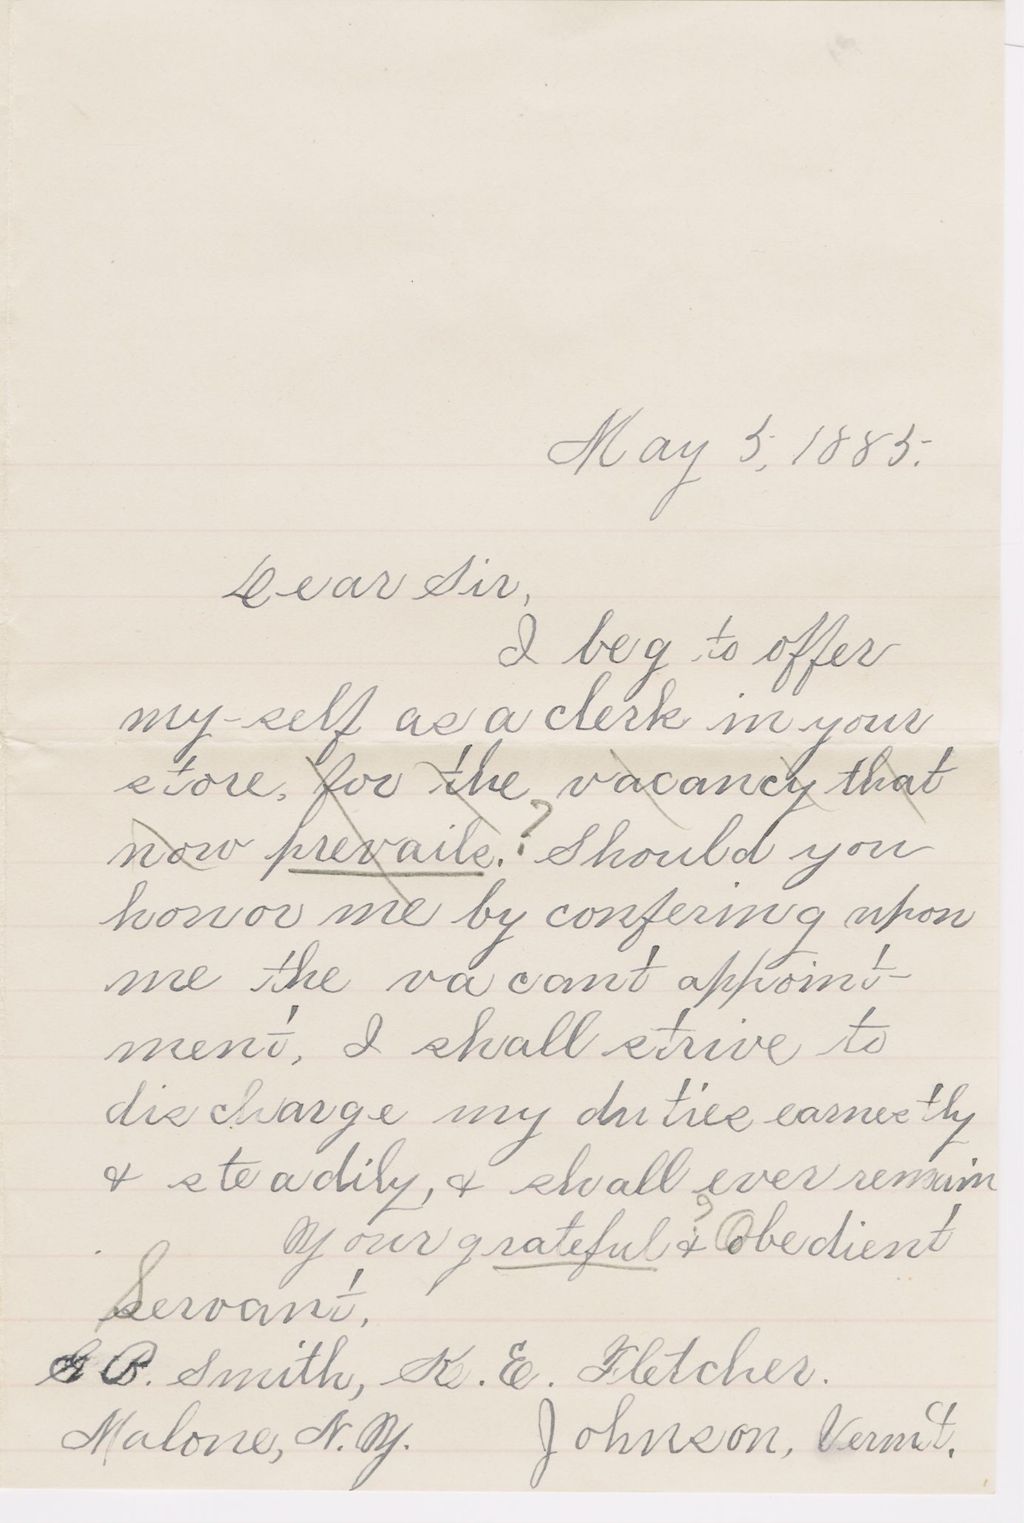 May 5, 1885.
Dear Sir,
I beg to offer
my-self as a clerk in your
store, for the vacancy that
now prevails.? Should you
honor me by confering upon
me the vacant appoint-
ment, I shall strive to
discharge my duties earnestly
& steadily, & shall ever remain
?
Your grateful & Obedient
Servant,
B. Smith, K. E. Fletcher.
Malone, N.Y. Johnson, Vermt.